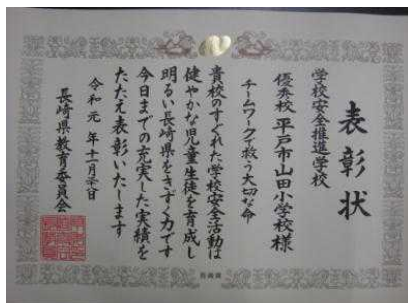 表彰状
学校安全推進学校
優秀校 平戸市山田小学校様
チームワークで救う大切な命
貴校のすぐれた学校安全活動は
健やかな児童生徒を育成し
明るい長崎県をきずく力です
今日までの充実した実績を
たたえ表彰いたします
令和元年十一月 日
長崎県教育委員会